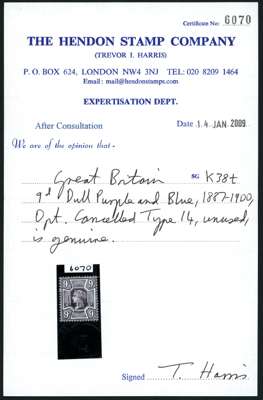 Certificate No: 6070
THE HENDON STAMP COMPANY
(TREVOR I. HARRIS)
P. O. BOX 624, LONDON NW4 3NJ TEL: 020 8209 1464
Email: mail@hendonstamps.com
EXPERTISATION DEPT.
After Consultation
Date 14 JAN 2009
We are of the opinion that -
Great Britain SG K38t
9d Dull Purple and Blue, 1887-1900,
Opt. Cancelled Type 14, unused,
is genuine.
6070
9 9
9 9
Signed T. Harris